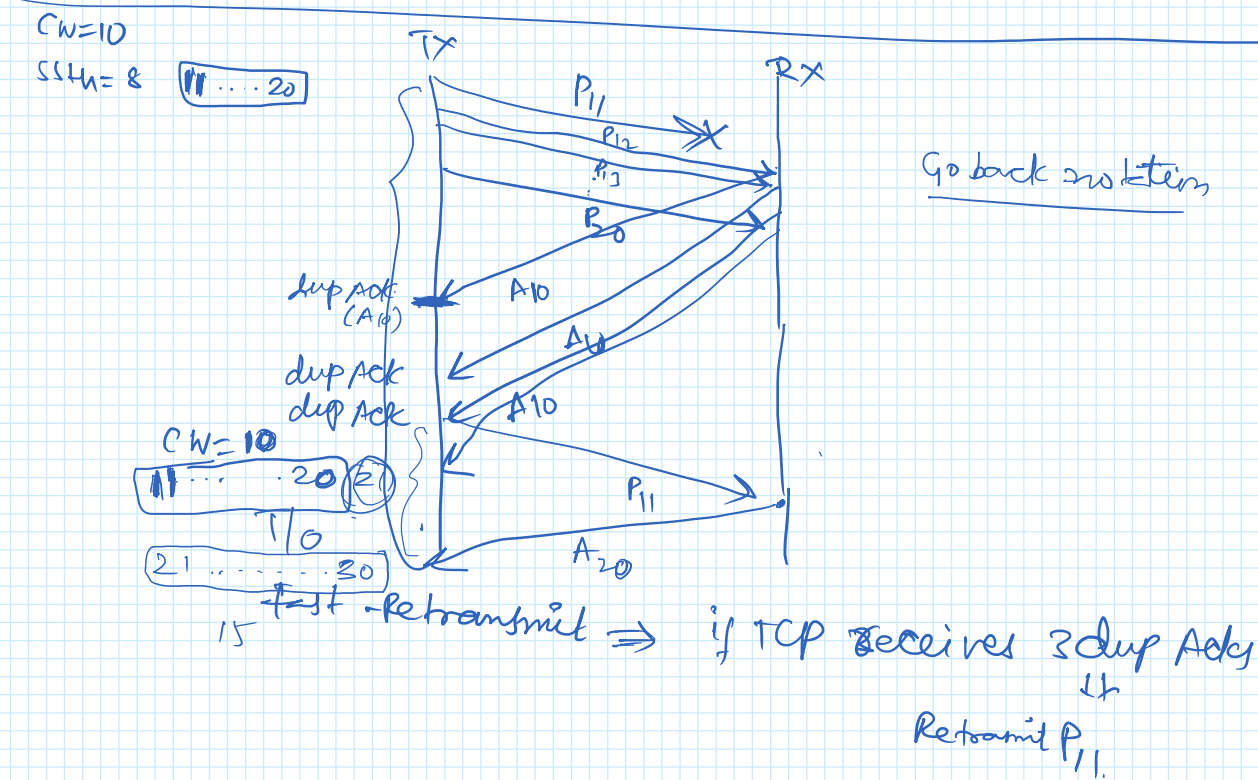 CW=10
TX
RX
SSth= 8
11 .... 20
P11
P12
P13
P20
Go back notation
dup Ack
(A10)
A10
A10
dup Ack
dup Ack
A10
CW= 10
11 ... . 20 21
P11
T/O
A20
21 ........ 30
15
fast -Retransmit ⇒ if TCP receives 3 dup Acks
⇓
Retransmit P11